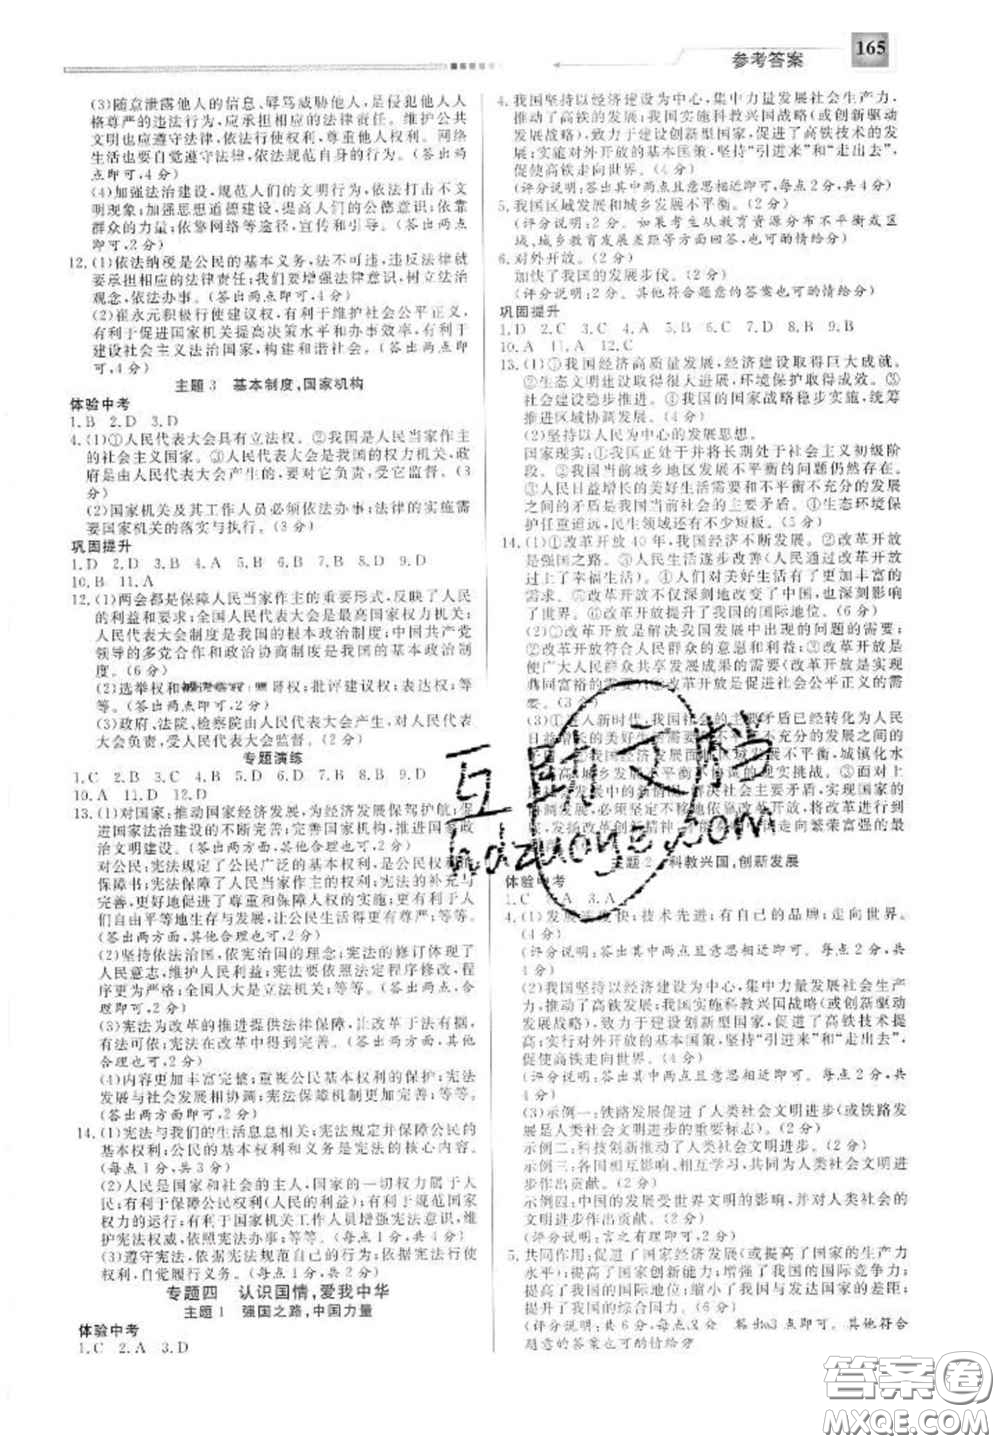 参考答案
165
(3)随意泄露他人的信息、辱骂威胁他人,是侵犯他人人
格尊严的违法行为,应承担相应的法律责任。维护公共
文明也应遵守法律,依法行使权利,尊重他人权利。网络
生活也要自觉遵守法律,依法规范自身的行为。(答出两
点即可,4分)
(4)加强法治建设,规范人们的文明行为,依法打击不文
明现象;加强思想道德建设,提高人们的公德意识;依靠
群众的力量;依靠网络等途径,宣传和引导。(答出两点
即可,2分)
12.(1)依法纳税是公民的基本义务,法不可违,违反法律就
要承担相应的法律责任;我们要增强法律意识,树立法治
观念,依法办事。(答出两点即可,4分)
(2)崔永元积极行使建议权,有利于维护社会公平正义,
有利于促进国家机关提高决策水平和办事效率,有利于
建设社会主义法治国家,构建和谐社会。(答出两点即
可,4分)
主题3 基本制度,国家机构
体验中考
1.B 2.D 3.D
4.(1)①人民代表大会具有立法权。②我国是人民当家作主
的社会主义国家。③人民代表大会是我国的权力机关,政
府是由人民代表大会产生的,要对它负责,受它监督。(3
分)
(2)国家机关及其工作人员必须依法办事;法律的实施需
要国家机关的落实与执行。(3分)
巩固提升
1.D 2.D 3.B 4.A 5.A 6.C 7.D 8.D 9.D
10.B 11.A
12.(1)两会都是保障人民当家作主的重要形式,反映了人民
的利益和要求;全国人民代表大会是最高国家权力机关;
人民代表大会制度是我国的根本政治制度;中国共产党
领导的多党合作和政治协商制度是我国的基本政治制
度。(6分)
(2)选举权和 权;批评建议权;表达权;等
等。(答出两点即可,2分)
(3)政府、法院、检察院由人民代表大会产生,对人民代表
大会负责,受人民代表大会监督。(2分)
专题演练
1.C 2.D 3.C 4.D 5.D 6.C 7.C 8.D 9.D
10.A 11.D 12.D
13.(1)对国家:推动国家经济发展,为经济发展保驾护航;促
进国家法治建设的不断完善;完善国家机构,推进国家政
治文明建设。(答出两方面,其他合理也可,2分)
对公民:宪法规定了公民广泛的基本权利,是公民权利的
保障书;宪法保障了人民当家作主的权利;宪法的补充与
完善,更好地促进了尊重和保障人权的实现;有利于人
们自由平等地生存与发展,让公民生活得更有尊严;等等。
(答出两方面,其他合理也可,2分)
(2)坚持依法治国,依宪治国的理念;宪法的修订体现了
人民意志,维护人民利益;宪法要依照法定程序修改,程
序更为严格;全国人大是立法机关;等等。(答出两点,合
理即可,2分)
(3)宪法为改革的推进提供法律保障,让改革于法有据,
有法可依;宪法在改革中得到完善。(答出两方面,其他
合理也可,2分)
(4)内容更加丰富完整;重视公民基本权利的保护;宪法
发展与社会发展相协调;宪法体制机制更加完善;等等。
(答出两方面即可,2分)
14.(1)宪法与我们的生活息息相关;宪法规定并保障公民的
基本权利;公民的基本权利和义务是宪法的核心内容。
(每点1分,共3分)
(2)人民是国家和社会的主人,国家的一切权力属于人
民;有利于保障公民权利(人民的利益);有利于规范国家
权力的运行;有利于国家机关工作人员增强宪法意识,维
护宪法权威,依宪法办事;等等。(每点1分,共4分)
(3)遵守宪法,依据宪法规范自己的行为;依据宪法行使
权利,自觉履行义务。(每点1分,共2分)
专题四 认识国情,爱我中华
主题1 强国之路,中国力量
体验中考
1.C 2.A 3.D
4.我国坚持以经济建设为中心,集中力量发展社会生产力,
推动了高铁的发展;我国实施科教兴国战略(或创新驱动
发展战略),致力于建设创新型国家,促进了高铁技术的发
展;实施对外开放的基本国策,坚持“引进来”和“走出去”,
促使高铁走向世界。(4分)
(评分说明:答出其中两点且意思相近即可,每点2分,共4分)
5.我国区域发展和城乡发展不平衡。(2分)
(评分说明:2分。如果考生从教育资源分布不平衡或区
域、城乡教育发展差距等方面回答,也可给分)
6.对外开放。(2分)
加快了我国的发展步伐。(2分)
(评分说明:2分。其他符合题意的答案也可酌情给分)
巩固提升
1.D 2.C 3.C 4.A 5.C 6.D 7.D 8.B 9.B
10.A 11.A 12.C
13.(1)①我国经济高质量发展,经济建设取得巨大成就。
②生态文明建设取得很大进展,环境保护取得成效。③
社会建设稳步推进。④我国的国家战略稳步实施,统筹
推进区域协调发展。(4分)
(2)坚持以人民为中心的发展思想。
国家现实:①我国正处于并将长期处于社会主义初级阶
段。②我国当前城乡地区发展不平衡的问题仍然存在。
③人民日益增长的美好生活需要和不平衡不充分的发展
之间的矛盾是我国当前社会的主要矛盾。④生态环境保
护任重道远,民生领域还有不少短板。(5分)
14.(1)①改革开放40年,我国经济不断发展。②改革开放
是强国之路。③人民生活逐步改善(人民从改革开放中
过上了幸福生活)。④人们对美好生活有了更加丰富的
需求。⑤改革开放不仅深刻地改变了中国,也深刻影响
了世界。⑥改革开放提升了我国的国际地位。(6分)
(2)①改革开放是解决我国发展中出现的问题的需要;
②改革开放符合人民群众的意愿和利益;③改革开放是
使广大人民群众共享发展成果的需要;④改革开放是实现
共同富裕的需要;⑤改革开放是促进社会公平正义的需
要。(4分)
(3)①进入新时代,我国社会的主要矛盾已经转化为人民
日益增长的美好生活需要和不平衡不充分的发展之间的
矛盾。 我国城乡发展不平衡,城镇化水
平 不高。③面对社会
发展,必须坚定不移地依靠改革,将改革进行到
底,发扬改革创新精神,才能 走向繁荣富强的最
主题2 科教兴国,创新发展
体验中考
1.C 2.A 3.A
4.(1)发展速度快;技术先进;有自己的品牌;走向世界。
(4分)
(评分说明:答出其中两点且意思相近即可。每点2分,共
4分)
(2)我国坚持以经济建设为中心,集中力量发展社会生产
力,推动了高铁的发展;我国实施科教兴国战略(或创新驱动
发展战略),致力于建设创新型国家,促进了高铁技术提
高;实行对外开放的基本国策,坚持“引进来”和“走出去”,
促使高铁走向世界。(4分)
(评分说明:答出其中两点且意思相近即可。每点2分,共
4分)
(3)示例一:铁路发展促进了人类社会文明进步(或铁路发
展是人类社会文明进步的重要标志)。(2分)
示例二:科技创新推动了人类社会文明进步。(2分)
示例三:各国相互影响、相互学习,共同为人类社会文明进步
作出贡献。(2分)
示例四:中国的发展受世界文明的影响,并对人类社会的
文明进步作出贡献。(2分)
(评分说明:言之有理即可。2分)
5.共同作用:促进了国家经济发展(或提高了国家的生产力
水平);提高了国家创新能力;增强了国家的国际竞争力;
提升了我国的国际地位;缩小了与发达国家的差距;
提升了我国的综合国力。(6分)
(评分说明:共6分,每点2分 答出3点即可。其他符合
题意的答案也可酌情给分
互助文档
hdzuoye.com
答案卷
MXQE.COM